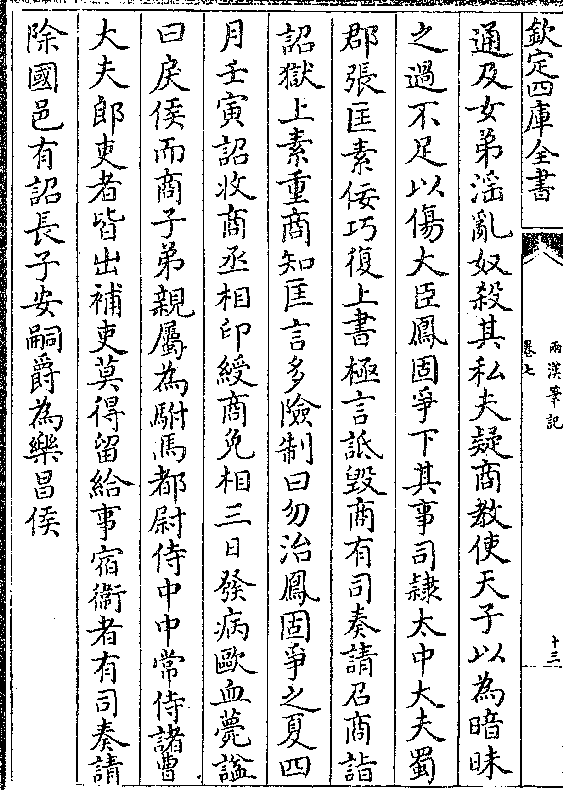 欽定四庫全書
兩漢筆記
卷七
十三
通及女弟淫亂奴殺其私夫疑商教使天子以為暗昧
之過不足以傷大臣鳳固爭下其事司隸太中大夫蜀
郡張匡素佞巧復上書極言詆毀商有司奏請召商詣
詔獄上素重商知匡言多險制曰勿治鳳固爭之夏四
月壬寅詔收商丞相印綬商免相三日發病歐血薨諡
曰戾侯而商子弟親屬為駙馬都尉侍中中常侍諸曹
大夫郎吏者皆出補吏莫得留給事宿衞者有司奏請
除國邑有詔長子安嗣爵為樂昌侯